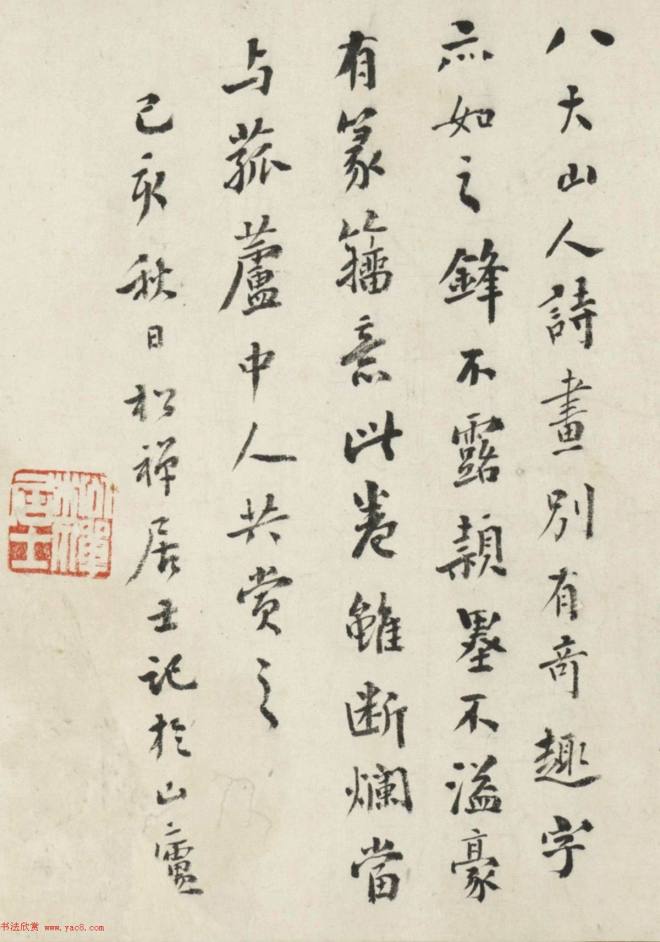 八大山人詩畫別有奇趣字
亦如之鋒不露穎墨不溢豪
有篆籀意此卷雖断爛當
与菰蘆中人共赏之
己亥秋日松禅居士記於山廬
松禪居士
书法欣赏 www.yac8.com